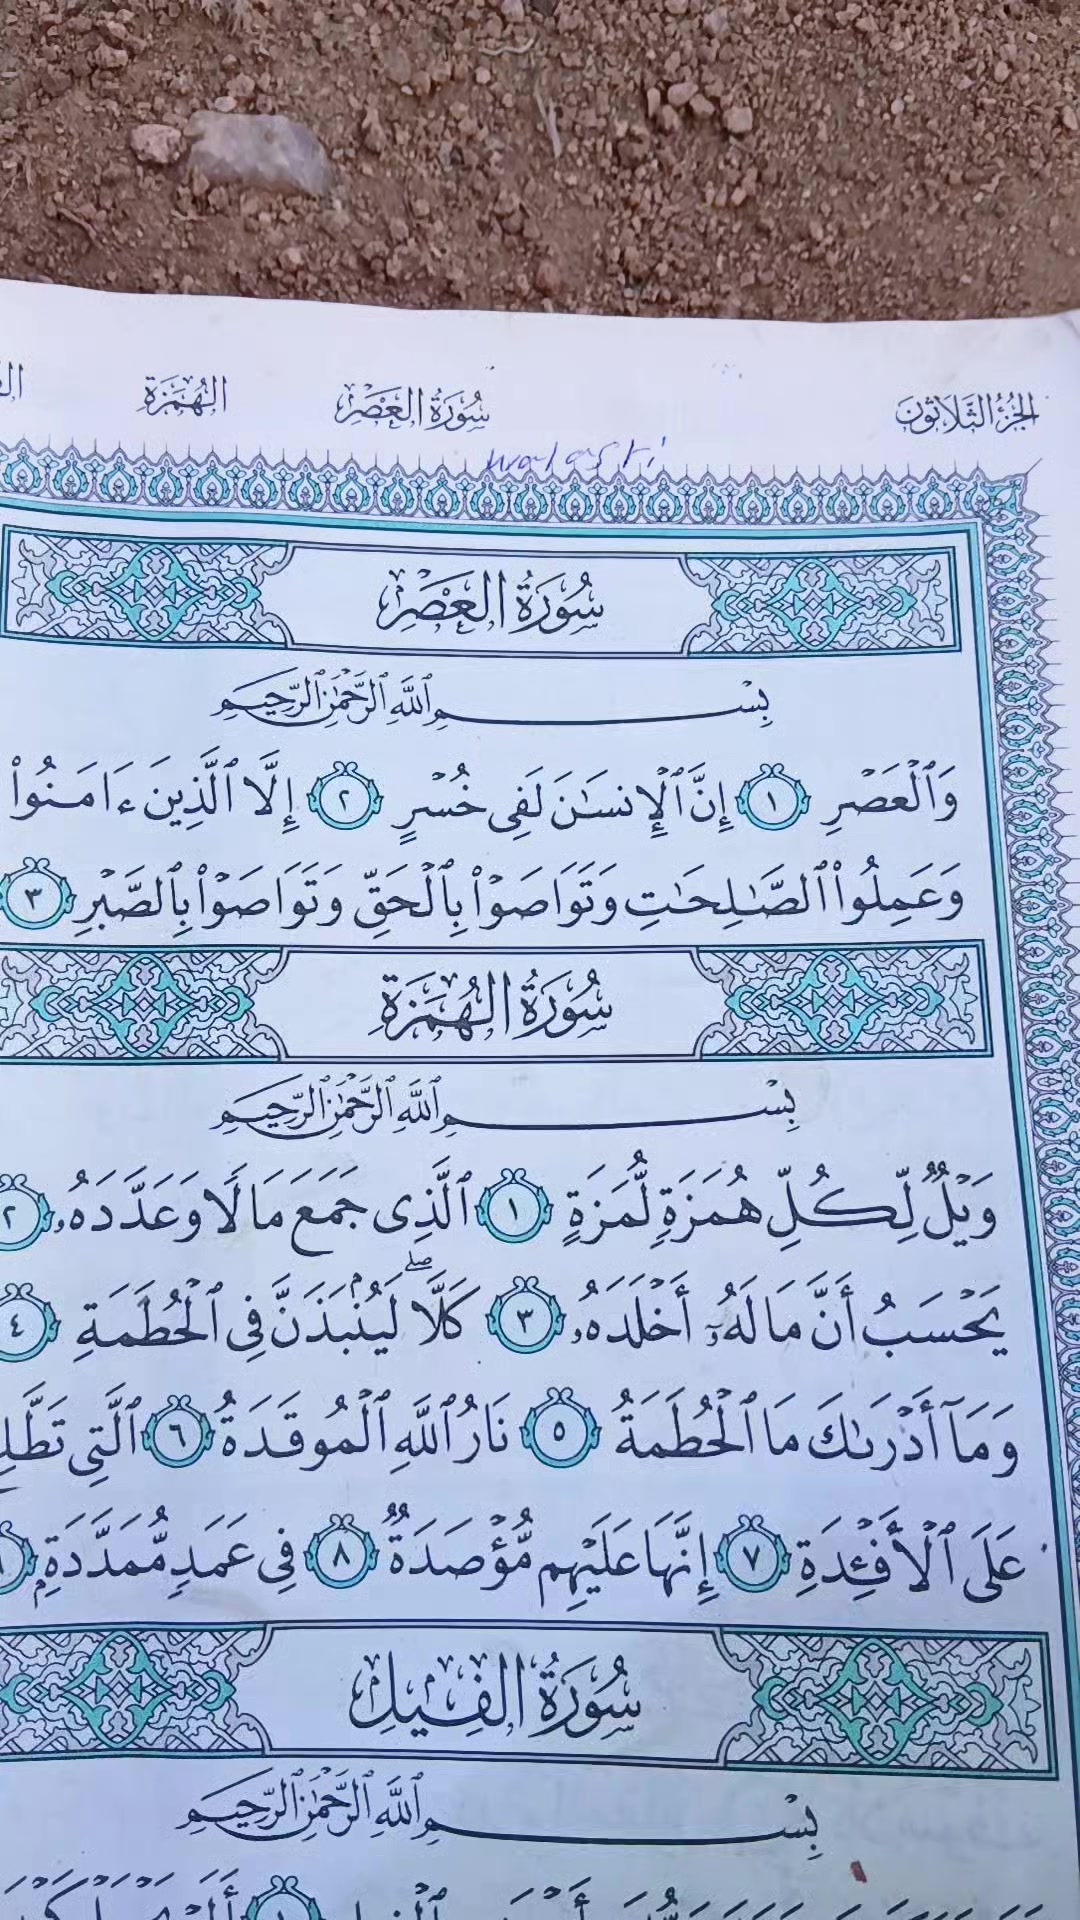 الجزء الثلاثون سورة العصر الهمزة
سُورَةُ العَصْرِ
بِسْمِ ٱللَّهِ ٱلرَّحْمَٰنِ ٱلرَّحِيمِ
وَٱلْعَصْرِ ١ إِنَّ ٱلْإِنسَٰنَ لَفِى خُسْرٍ ٢ إِلَّا ٱلَّذِينَ ءَامَنُوا۟
وَعَمِلُوا۟ ٱلصَّٰلِحَٰتِ وَتَوَاصَوْا۟ بِٱلْحَقِّ وَتَوَاصَوْا۟ بِٱلصَّبْرِ ٣
سُورَةُ الهُمَزَةِ
بِسْمِ ٱللَّهِ ٱلرَّحْمَٰنِ ٱلرَّحِيمِ
وَيْلٌ لِّكُلِّ هُمَزَةٍ لُّمَزَةٍ ١ ٱلَّذِى جَمَعَ مَالًا وَعَدَّدَهُۥ ٢
يَحْسَبُ أَنَّ مَالَهُۥٓ أَخْلَدَهُۥ ٣ كَلَّا ۖ لَيُنۢبَذَنَّ فِى ٱلْحُطَمَةِ ٤
وَمَآ أَدْرَىٰكَ مَا ٱلْحُطَمَةُ ٥ نَارُ ٱللَّهِ ٱلْمُوقَدَةُ ٦ ٱلَّتِى تَطَّلِ
عَلَى ٱلْأَفْـِٔدَةِ ٧ إِنَّهَا عَلَيْهِم مُّؤْصَدَةٌ ٨ فِى عَمَدٍ مُّمَدَّدَةٍۭ
سُورَةُ الفِيلِ
بِسْمِ ٱللَّهِ ٱلرَّحْمَٰنِ ٱلرَّحِيمِ